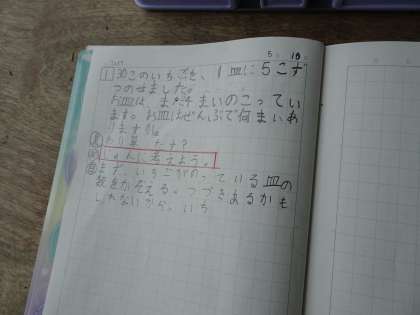 5 10
1 30このいちごを、1皿に5こず
つのせました。
お皿は、まだ まいのこってい
ます。お皿はぜんぶで何まいあ
りますか。
わり算 たす?
に考えよう。
まず、いちごがのっている皿の
数をかぞえる。つづきあるかも
しれないから、いち